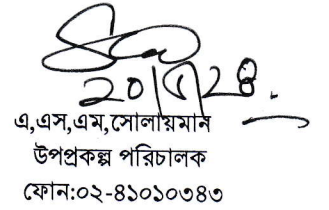 ২০/৫/২৪
এ,এস,এম,সোলায়মান
উপপ্রকল্প পরিচালক
ফোন:০২-৪১০১০৩৪৩